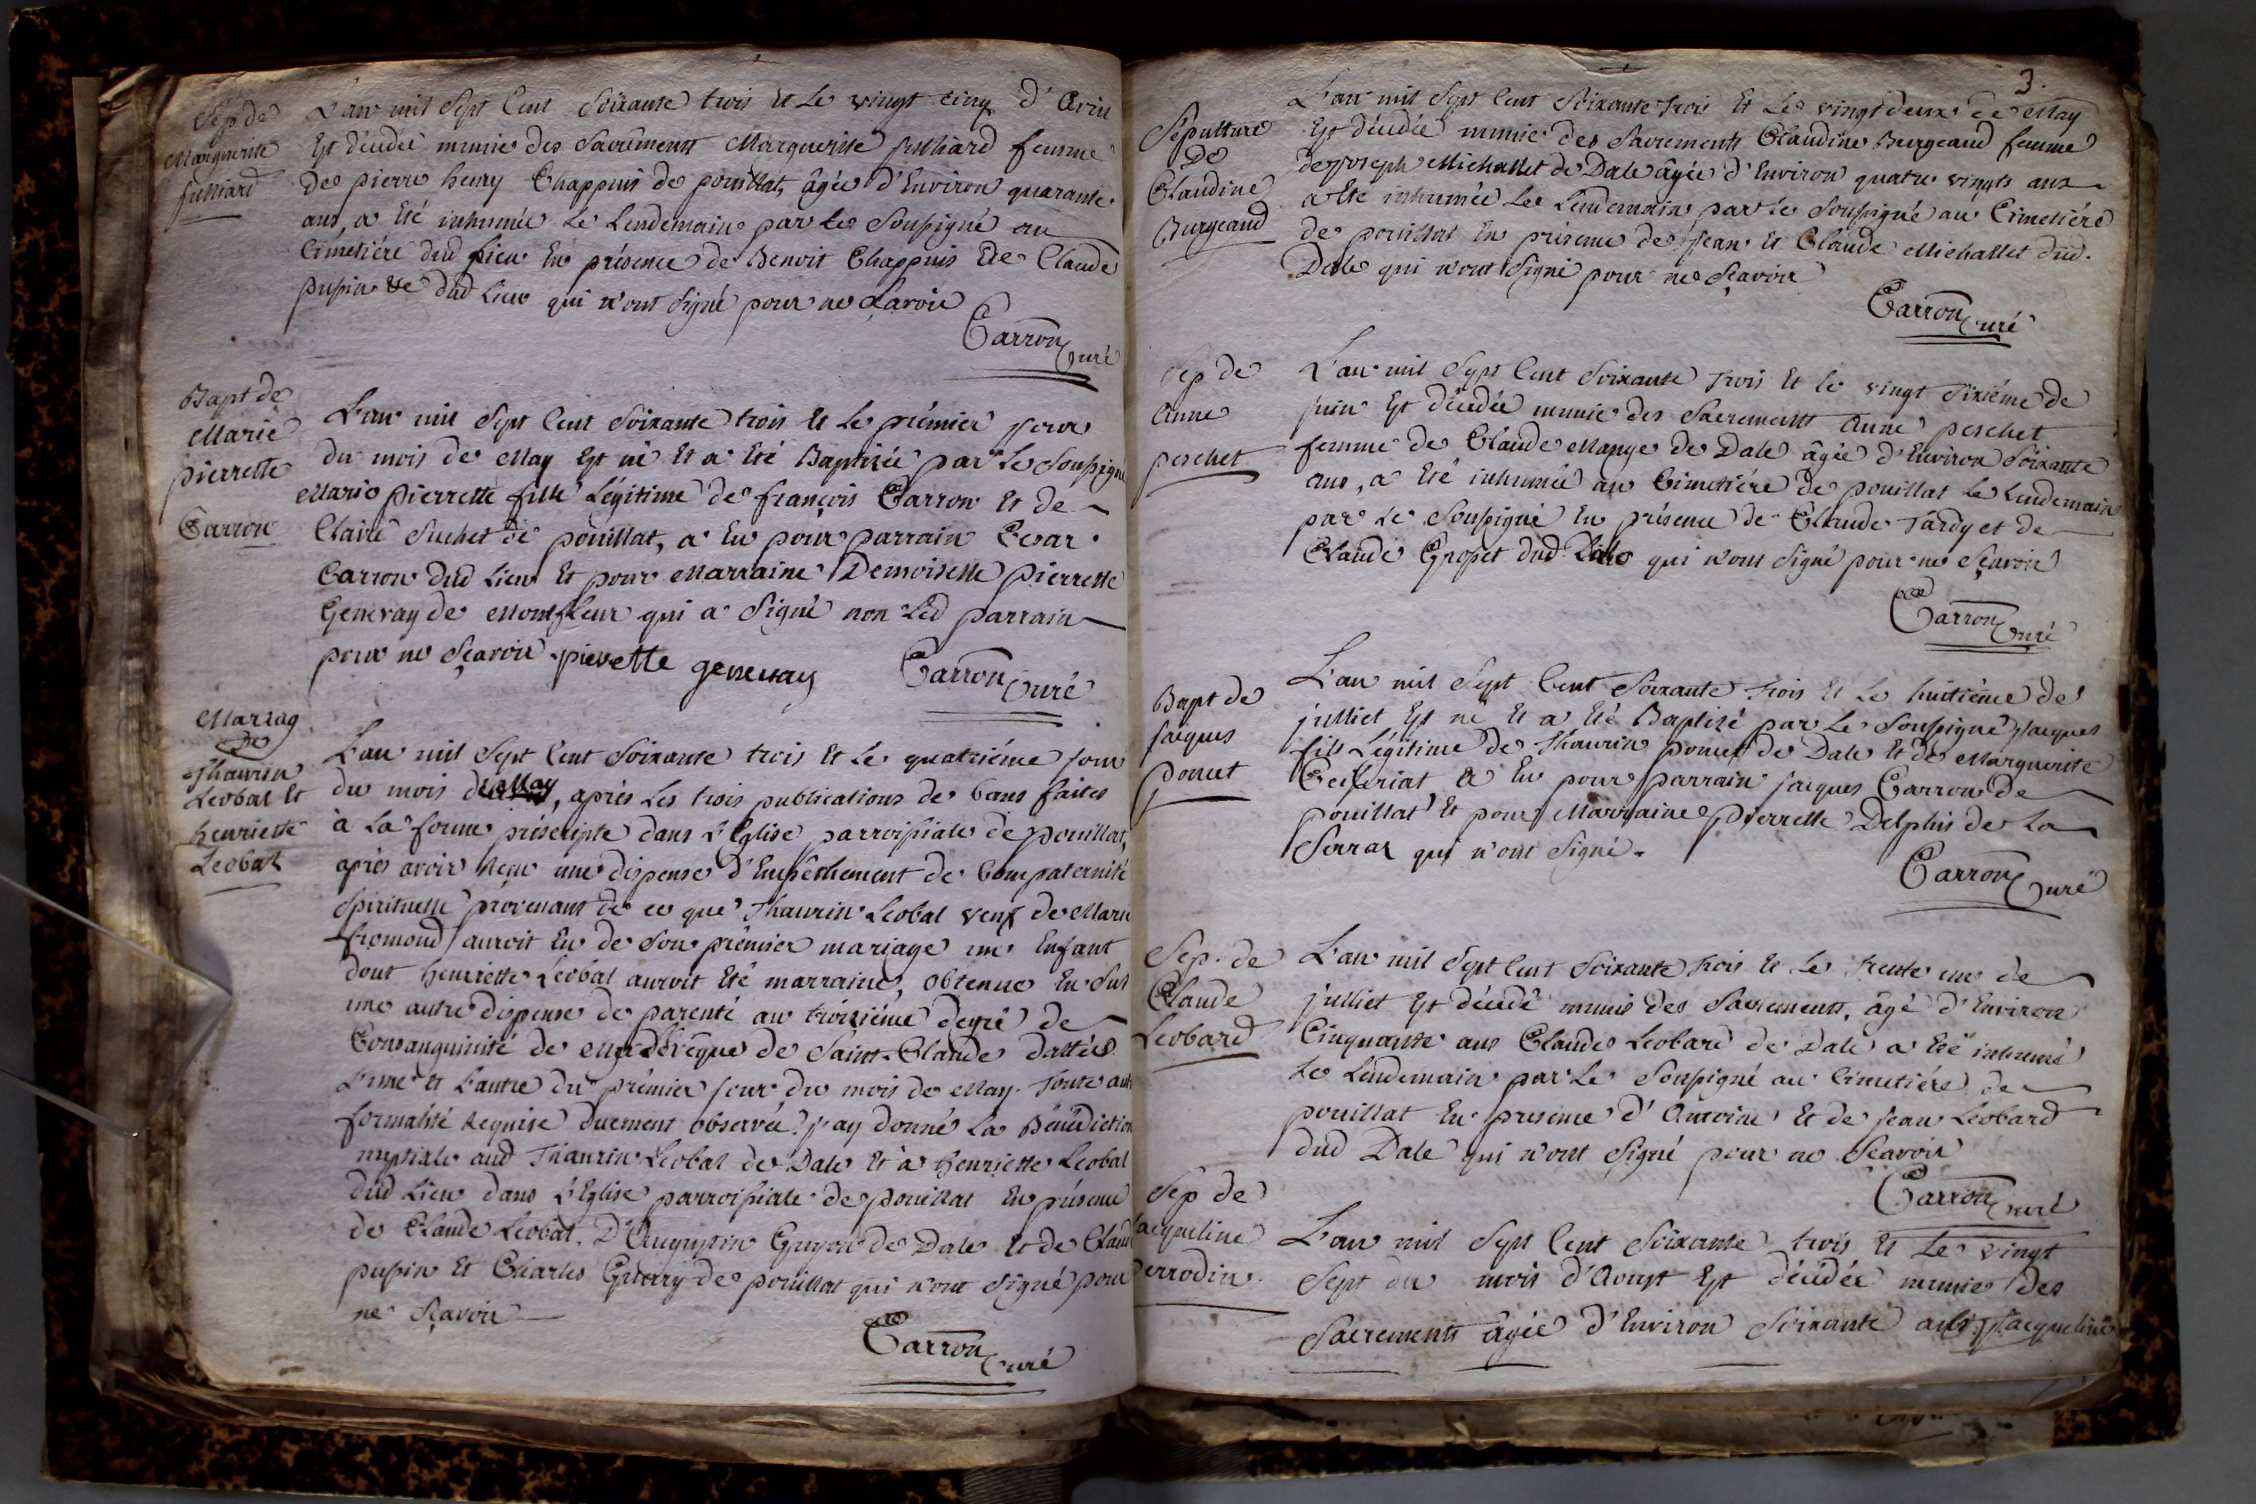 Sep de
Marguerite
Julliard
L'an mil Sept Cent Soixante trois Et Le vingt cinq d'Avril
Est décédée munie des Sacréments Marguerite Julliard femme
De pierre henry Chappuis de pouillat, âgée d'Environ quarante
ans, a Eté inhumée Le Lendemain par Le Soussigné au
Cimetiére dud Lieu En présence de Benoit Chappuis Et de Claude
pupin dud Lieu qui n'ont Signé pour ne Sçavoir
Carron Curé
Bapt de
Marie
pierrette
Carron
L'an mil Sept Cent Soixante trois Et Le prémier jour
du mois de May Est né Et a Eté Baptisée par Le Soussigné
Marie pierrette fille Légitime de françois Carron Et de
Claire Suchet de pouillat, a Eu pour parrain
Carron dud Lieu Et pour Marraine Demoiselle pierrette
Genevay de Montfleur qui a Signé non Led parrain
pour ne Sçavoir pierette genevay Carron Curé
Mariag
De
Thaurin
Leobal Et
henriette
Leobal
L'an mil Sept Cent Soixante trois Et Le quatriéme jour
du mois de May, après Les trois publications de bans faites
à La forme préscripte dans L'Eglise parroissiale de pouillat,
après avoir Reçu une dispense d'Empêchement de Compaternité
Spirituelle provenant de ce que Thaurin Leobal veuf de Marie
fromond auroit Eu de Son prémier mariage un Enfant
dont henriette Leobal auroit Eté marraine, obtenue En Sus
une autre dispense de parenté au troisiéme degré de
Consanguinité de Mgr L'évêque de Saint-Claude dattées
L'une Et L'autre du prémier jour du mois de May. Toute autre
formalité Requise duement observée j'ay donné La Bénédiction
nuptiale aud Thaurin Leobal de Dale Et à henriette Leobal
dud Lieu dans L'Eglise parroissiale de pouillat En présence
de Claude Leobal, D'Augustin Guyon de Dale Et de Claude
pupin Et Charles Guerry de pouillat qui n'ont Signé pour
ne Sçavoir
Carron Curé
3.
Sépulture
De
Claudine
Burgeaud
L'an mil Sept Cent Soixante trois Et Le vingt deux de May
Est décédée munie des Sacrements Claudine Burgeaud femme
de joseph Michallet de Dale âgée d'Environ quatre vingts ans
a Eté inhumée Le Lendemain par Le Soussigné au Cimetiére
de pouillat En présence de jean Et Claude Michallet dud.
Dale qui n'ont Signé pour ne Sçavoir
Carron Curé
Sep de
Anne
peschet
L'an mil Sept Cent Soixante trois Et le vingt Sixiéme de
juin Est décédée munie des Sacrements Anne peschet
femme de Claude Mange de Dale âgée d'Environ Soixante
ans, a Eté inhumée au Cimetiére de pouillat Le Lendemain
par Le Soussigné En présence de Claude Tardy et de
Claude Gropet dud Dale qui n'ont Signé pour ne Sçavoir
Carron Curé
Bapt de
Jacques
poncet
L'an mil Sept Cent Soixante trois Et Le huitiéme de
juilliet Est né Et a Eté Baptisé par Le Soussigné Jacques
fils Légitime de Thaurin poncet de Dale Et de Marguerite
a Eu pour parrain jacques Carron de
pouillat Et pour Marraine pierrette Delphis de La
Serraz qui n'ont Signé.
Carron Curé
Sep. de
Claude
Leobard
L'an mil Sept Cent Soixante trois Et Le trente un de
juilliet Est décédé munis des Sacrements, âgé d'Environ
Cinquante ans Claude Leobard de Dale a Eté inhumé
Le Lendemain par Le Soussigné au Cimetiére de
pouillat En présence d'Antoine Et de jean Leobard
dud Dale qui n'ont Signé pour ne Sçavoir
Carron Curé
Sep de
Jacqueline
perrodin
L'an mil Sept Cent Soixante trois Et Le vingt
Sept du mois d'Aoust Est décédée munie des
Sacrements âgée d'Environ Soixante ans Jacqueline